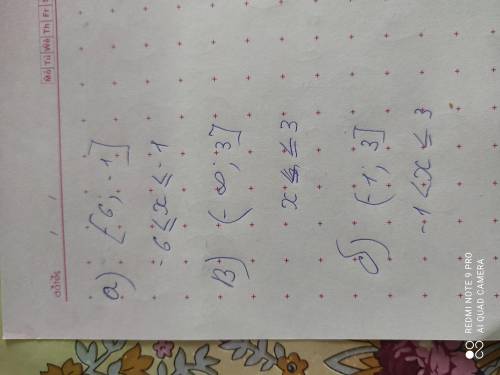 Mo Tu We Th Fr
Date
a) [-6; -1]
-6 ≤ x ≤ -1
B) (-∞; 3]
x ≤ 3
б) (-1; 3]
-1 < x ≤ 3
REDMI NOTE 9 PRO
AI QUAD CAMERA